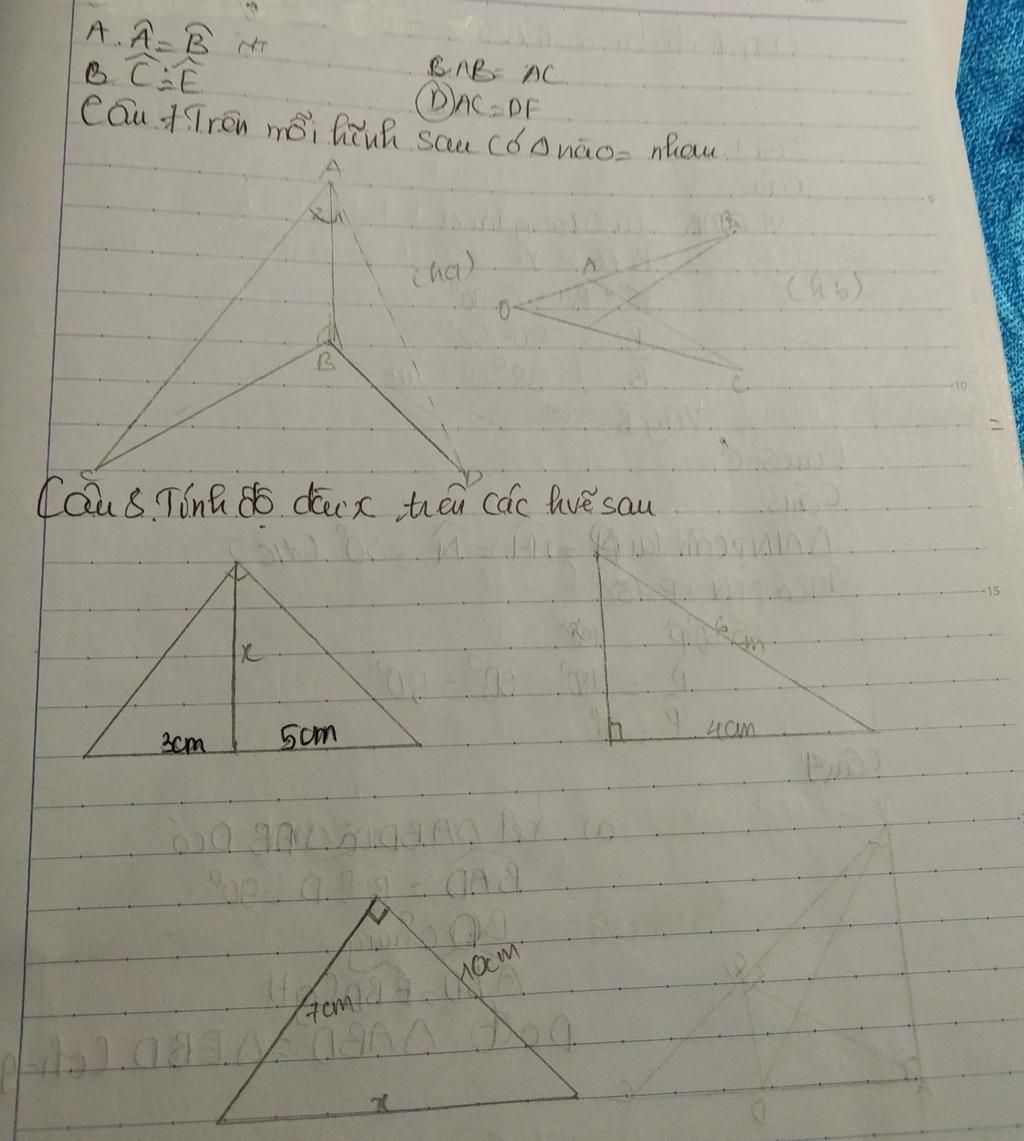 A. Â = B̂
B. Ĉ = Ê
B. AB = AC
D AC = DF
Câu 7 Trên mỗi hình sau có Δ nào = nhau
A
B
C
D
(ha)
O
A
B
C
(hb)
Câu 8. Tính độ dài x trên các hvẽ sau
x
3cm
5cm
6cm
4cm
7cm
10cm
x